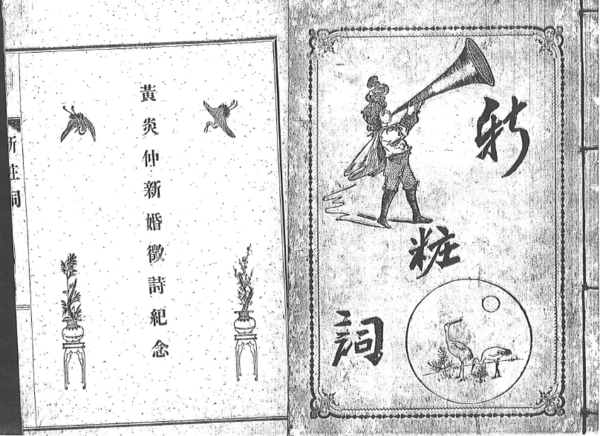 新粧詞
黃炎仲新婚徵詩紀念
新粧詞